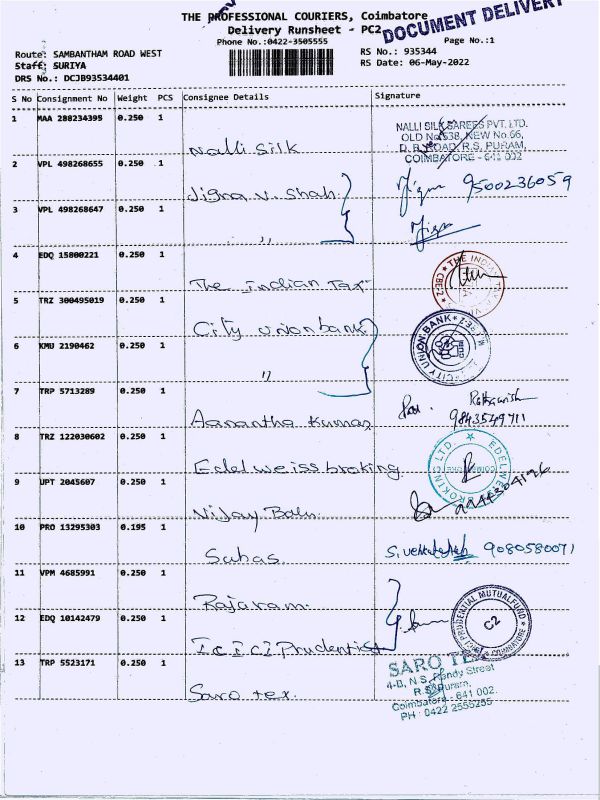 THE PROFESSIONAL COURIERS, Coimbatore
DOCUMENT DELIVERY
Delivery Runsheet - PC2
Phone No.:0422-3505555
Page No.:1
Route: SAMBANTHAM ROAD WEST
RS No.: 935344
Staff: SURIYA
RS Date: 06-May-2022
DRS No.: DCJB93534401
S No Consignment No Weight PCS Consignee Details Signature
1 MAA 288234395 0.250 1
Nalli Silk
NALLI SILK SAREES PVT. LTD.
OLD No.538, NEW No.66,
D. B. ROAD, R.S. PURAM,
COIMBATORE - 641 002
2 VPL 498268655 0.250 1
Jigna v. Shah
9500236059
3 VPL 498268647 0.250 1
,,
4 EDQ 15800221 0.250 1
The Indian Tax
THE INDIAN
CBE-2
5 TRZ 300495019 0.250 1
City union bank
CITY UNION BANK
6 KMU 2190462 0.250 1
,,
7 TRP 5713289 0.250 1
Aanantha Kumar
9843549711
8 TRZ 122030602 0.250 1
Edelweiss broking
9 UPT 2045607 0.250 1
Vijay Balu
10 PRO 13295303 0.195 1
Subas
9080580071
11 VPM 4685991 0.250 1
Rajaram
12 EDQ 10142479 0.250 1
PRUDENTIAL MUTUAL FUND
C2
COIMBATORE
13 TRP 5523171 0.250 1
Saro tex.
SARO TEX
4-B, N.S. Bandy Street
R.S. Puram,
Coimbatore - 641 002.
PH : 0422 2555255